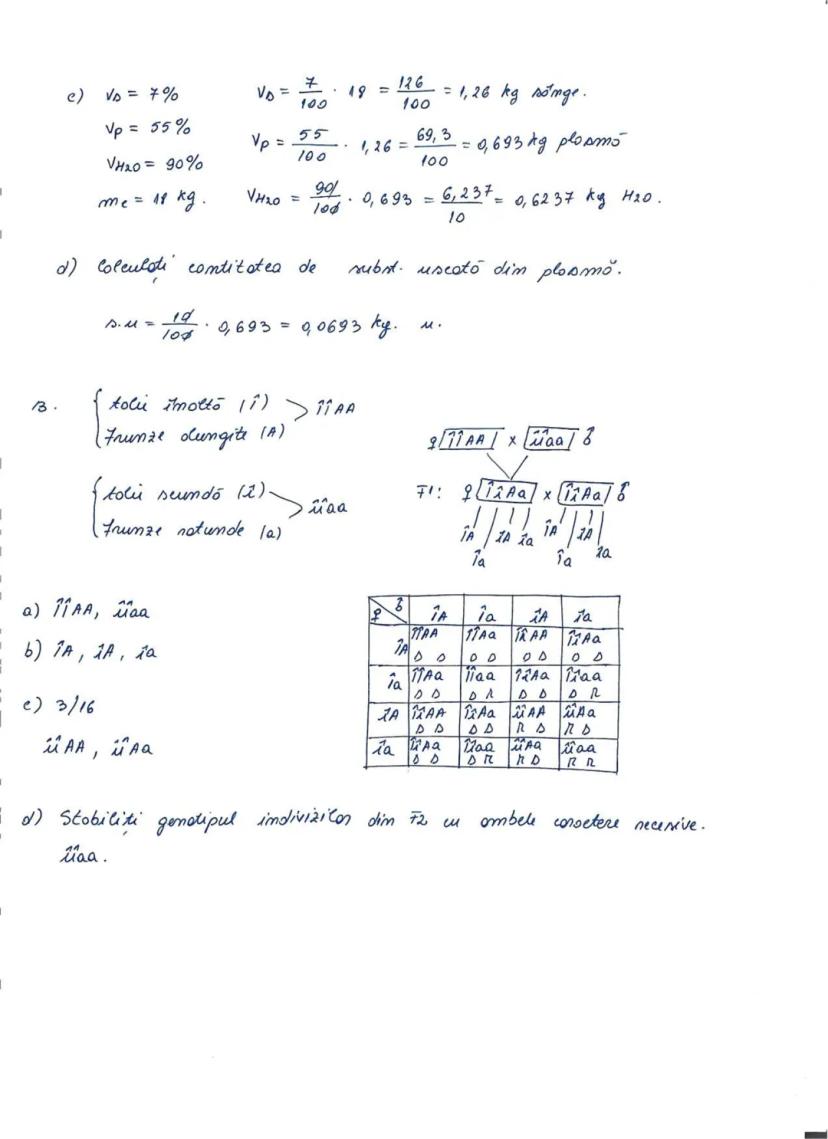 c) Vs = 7% Vs = 7/100 · 18 = 126/100 = 1,26 kg sânge.
Vp = 55% Vp = 55/100 · 1,26 = 69,3/100 = 0,693 kg plasmă
VH2O = 90%
mc = 18 kg. VH2O = 90/100 · 0,693 = 6,237/10 = 0,6237 kg H2O.
d) Calculați cantitatea de subst. uscată din plasmă.
s.u = 10/100 · 0,693 = 0,0693 kg. u.
B. talie înaltă (Î) > ÎÎAA
frunze alungite (A)
♀ ÎÎAA x îîaa ♂
talie scundă (î) > îîaa
frunze rotunde (a)
F1: ♀ ÎîAa x ÎîAa ♂
ÎA îA îa ÎA îA
Îa Îa îa
a) ÎÎAA, îîaa
b) ÎA, îA, îa
c) 3/16
îîAA, îîAa
♀ ♂ ÎA Îa îA îa
ÎA ÎÎAA ÎÎAa ÎîAA ÎîAa
D D D D D D D D
Îa ÎÎAa ÎÎaa ÎîAa Îîaa
D D D R D D D R
îA ÎîAA ÎîAa îîAA îîAa
D D D D R D R D
îa ÎîAa Îîaa îîAa îîaa
D D D R R D R R
d) Stabiliți genotipul indivizilor din F2 cu ambele caractere recesive.
îîaa.